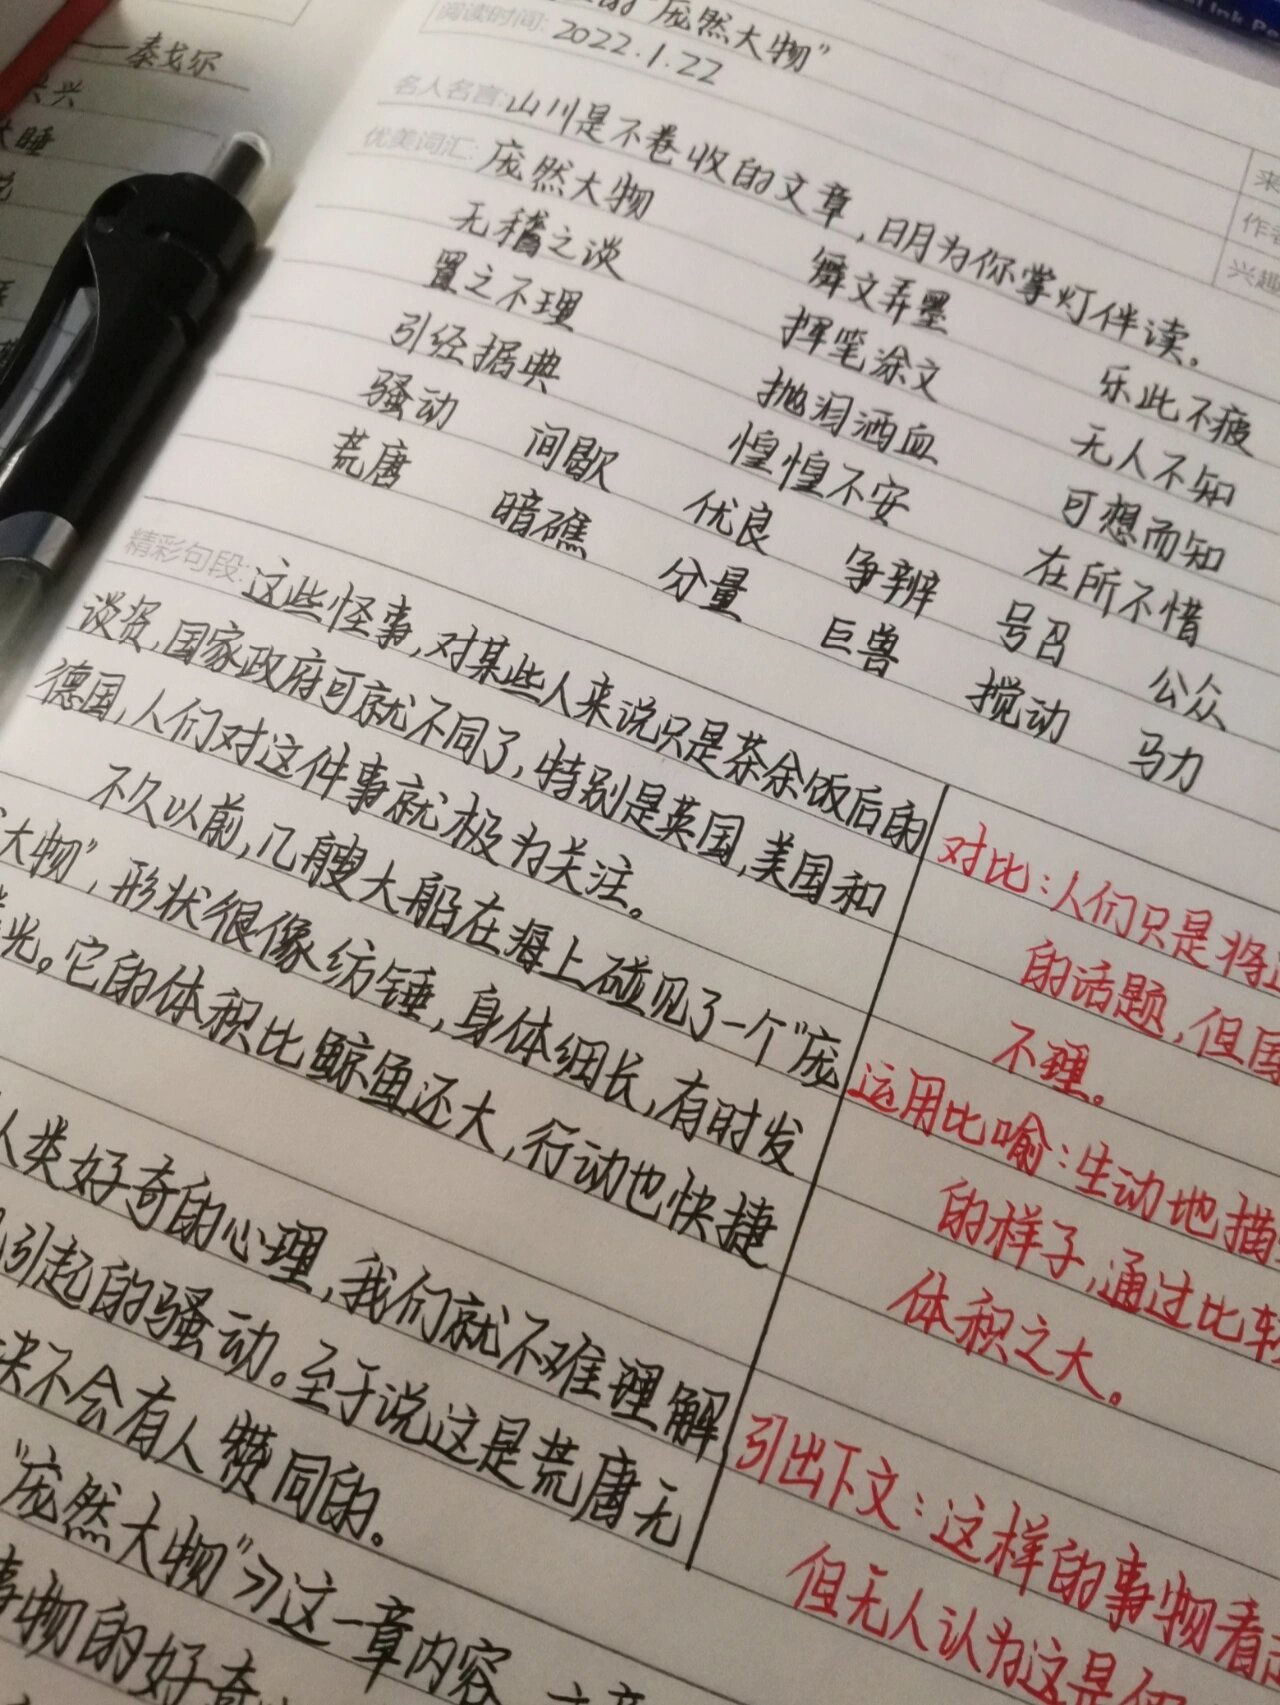 ——泰戈尔
睡
"庞然大物"
阅读时间: 2022.1.22
名人名言: 山川是不卷收的文章，日月为你掌灯伴读。
来
作者
兴趣
优美词汇: 庞然大物 舞文弄墨 乐此不疲
无稽之谈 挥笔涂文 无人不知
置之不理 抛泪洒血 可想而知
引经据典 惶惶不安 在所不惜
骚动 间歇 优良 争辨 号召 公众
荒唐 暗礁 分量 巨兽 搅动 马力
精彩句段: 这些怪事，对某些人来说只是茶余饭后的
谈资，国家政府可就不同了，特别是英国，美国和
德国，人们对这件事就极为关注。
不久以前，几艘大船在海上碰见了一个"庞
大物"，形状很像纺锤，身体细长，有时发
光。它的体积比鲸鱼还大，行动也快捷
人类好奇的心理，我们就不难理解
引起的骚动。至于说这是荒唐无
决不会有人赞同的。
"庞然大物"》这一章内容
事物的好奇
对比：人们只是将
的话题，但国
不理。
运用比喻：生动地描
的样子，通过比较
体积之大。
引出下文：这样的事物看
但无人认为这是